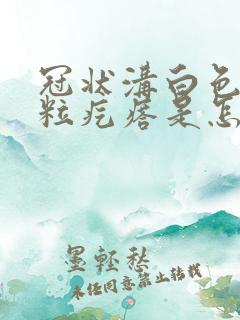 冠状溝白色
粒疙瘩是怎
墨轻愁
未经同意禁止转载